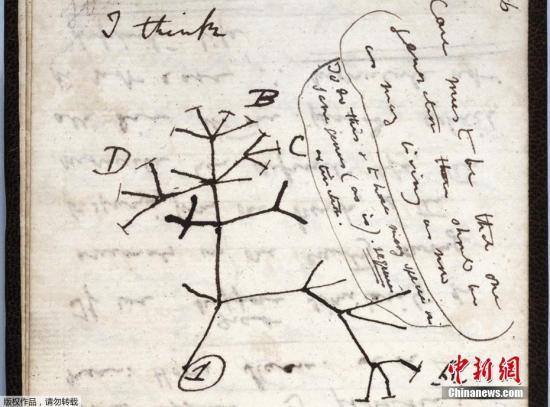 I think
Case must be that one
generation then should be
as many living as now
To do this & to have many species in
same genus (as is). requires
extinction.
B
C
D
A
1
中新网
www.Chinanews.com
©版权作品，请勿转载
Chinanews.com